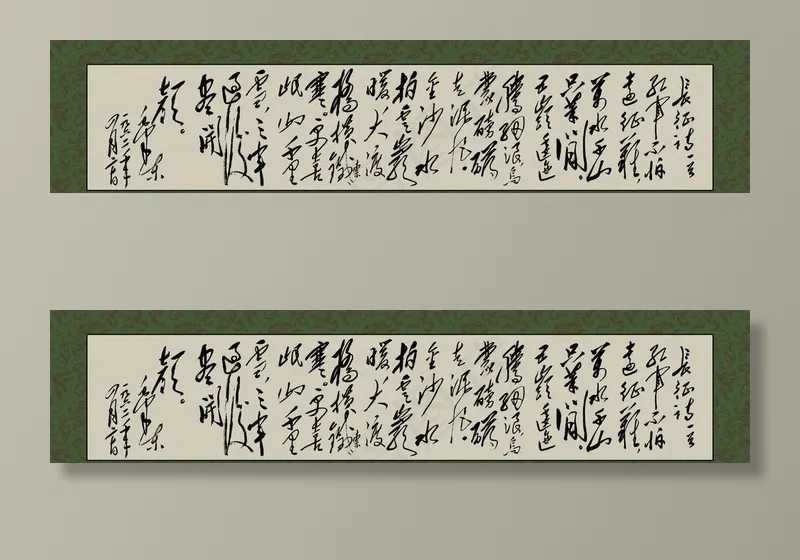 長征詩一首
紅軍不怕
遠征難,
萬水千山
只等閒。
五嶺逶迤
騰細浪烏
蒙磅礴
走泥丸。
金沙水
拍雲崖
暖大渡
橋橫鐵索
寒。更喜
岷山千里
雪三軍
過後
盡開
顏。
毛澤東
一九六二年
長征詩一首
紅軍不怕
遠征難,
萬水千山
只等閒。
五嶺逶迤
騰細浪烏
蒙磅礴
走泥丸。
金沙水
拍雲崖
暖大渡
橋橫鐵索
寒。更喜
岷山千里
雪三軍
過後
盡開
顏。
毛澤東
一九六二年